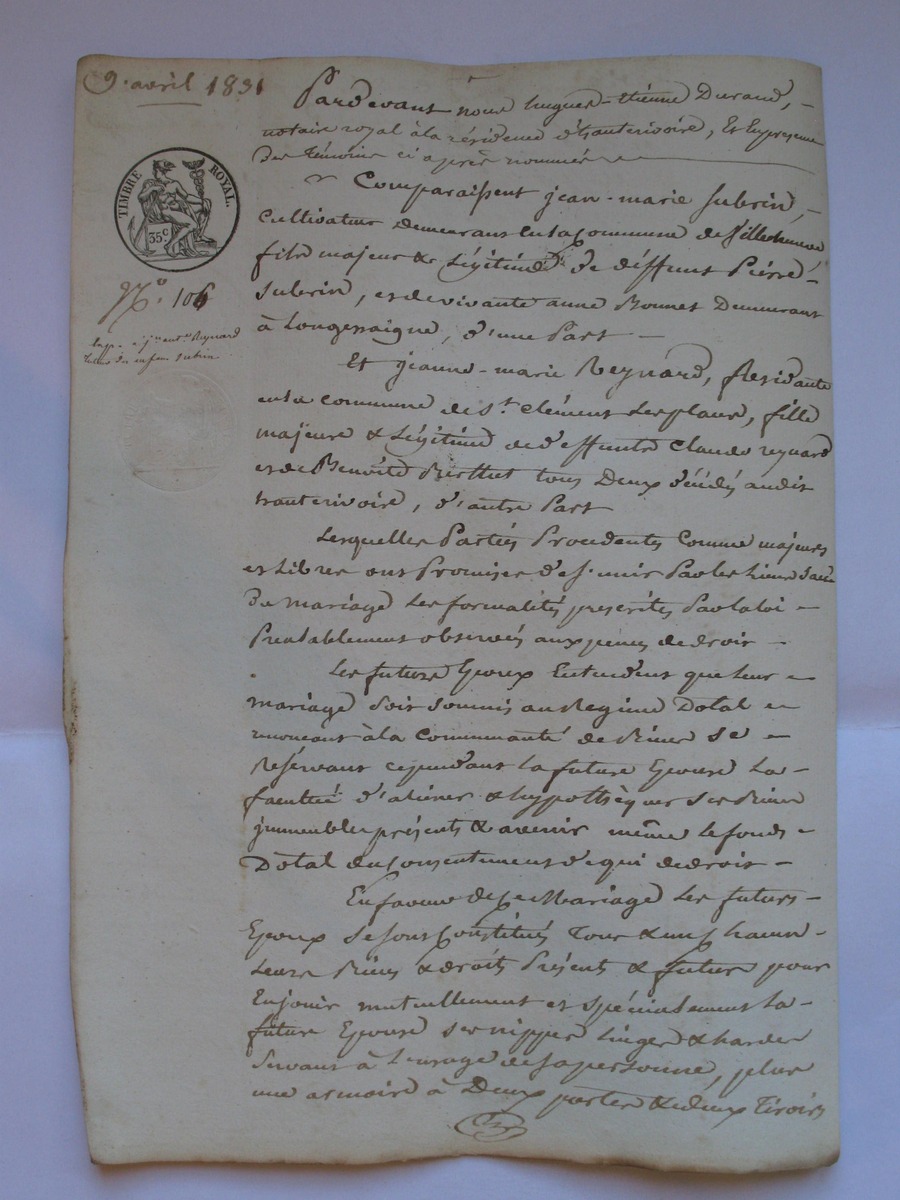 9. avril 1831
Pardevant nous hugues-Etienne Durand,
notaire royal à la résidence d'hauterivoire, Et En présence
Des Témoins ci après nommés
TIMBRE ROYAL.
35 C.
Comparaissent jean-marie Subrin,
Cultivateur Demeurant en la commune de Villechenève
fils majeur & Légitime De deffunt Pierre
Subrin, et de vivante anne Bonnet Demeurant
à Longessaigne, d'une Part
N.º 106
Et jeanne-marie Reynard, Résidante
en la commune de S.t Clément Les places, fille
majeure & Légitime de deffunts Claude reynard
et de Benoite Berthet tous Deux décédés audit
hauterivoire, d'autre Part
Lesquelles Parties Procedentes Comme majeures
et Libres ont Promises de s'unir Par les Liens
De mariage Les formalités prescrites Par la loi
Préalablement observées aux peines de droit
Les futurs Epoux Entendent que leur
mariage Soit soumis au Regime Dotal
renonceant à la Communauté de Biens Se
Réservant cependant La future Epouse La
faculté d'aliéner & hypothèquer Ses Biens
immeubles présents & avenir même le fonds
Dotal du Consentement de qui de droit
En faveur de Ce Mariage Les futurs
Epoux Se sont Constitués Tous & un Chacun
Leurs Biens & droits Présents & futurs pour
En jouir mutuellement et spécialement La
future Epouse ses nippes Linges & hardes
Servant à L'usage de sa personne, plus
une armoire à Deux portes & deux Tiroirs